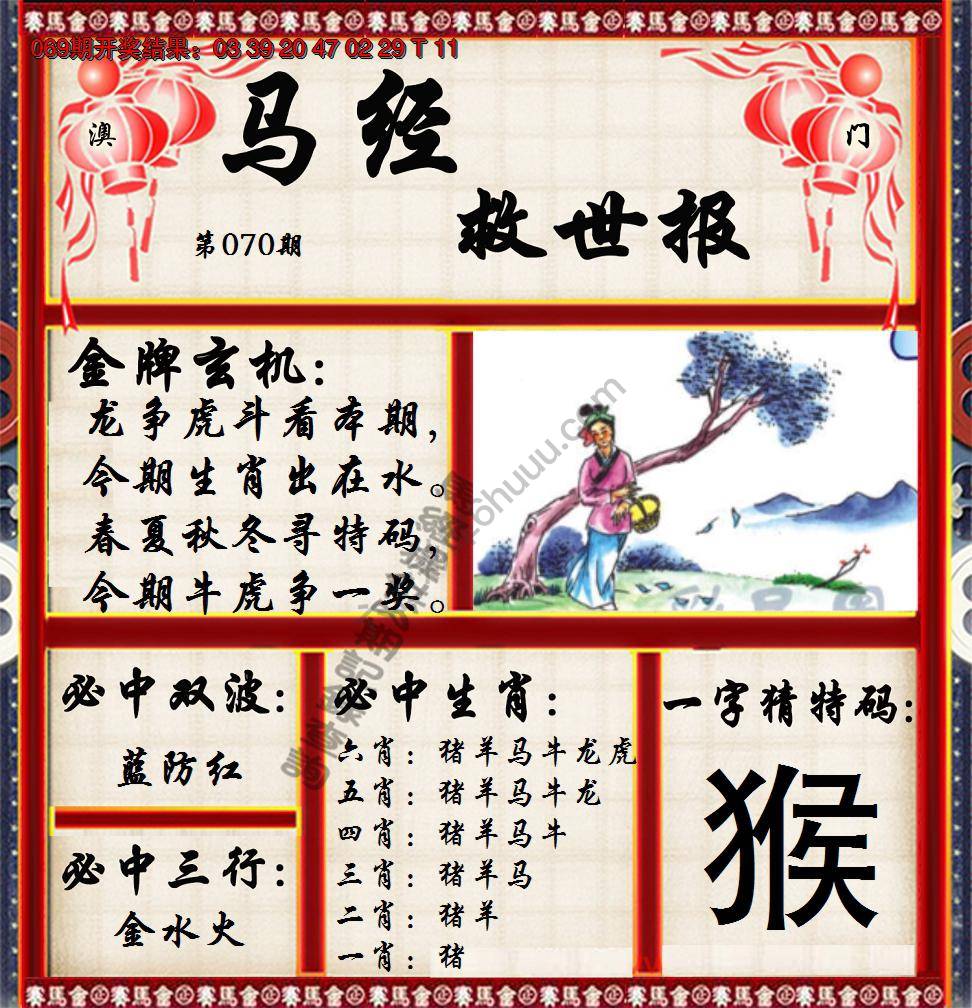 赛馬会
069期开奖结果：03 39 20 47 02 29 T 11
澳门
马经
救世报
第070期
金牌玄机：
龙争虎斗看本期，
今期生肖出在水。
春夏秋冬寻特码，
今期牛虎争一奖。
必中双波：
蓝防红
必中三行：
金水火
必中生肖：
六肖：猪羊马牛龙虎
五肖：猪羊马牛龙
四肖：猪羊马牛
三肖：猪羊马
二肖：猪羊
一肖：猪
一字猜特码：
猴